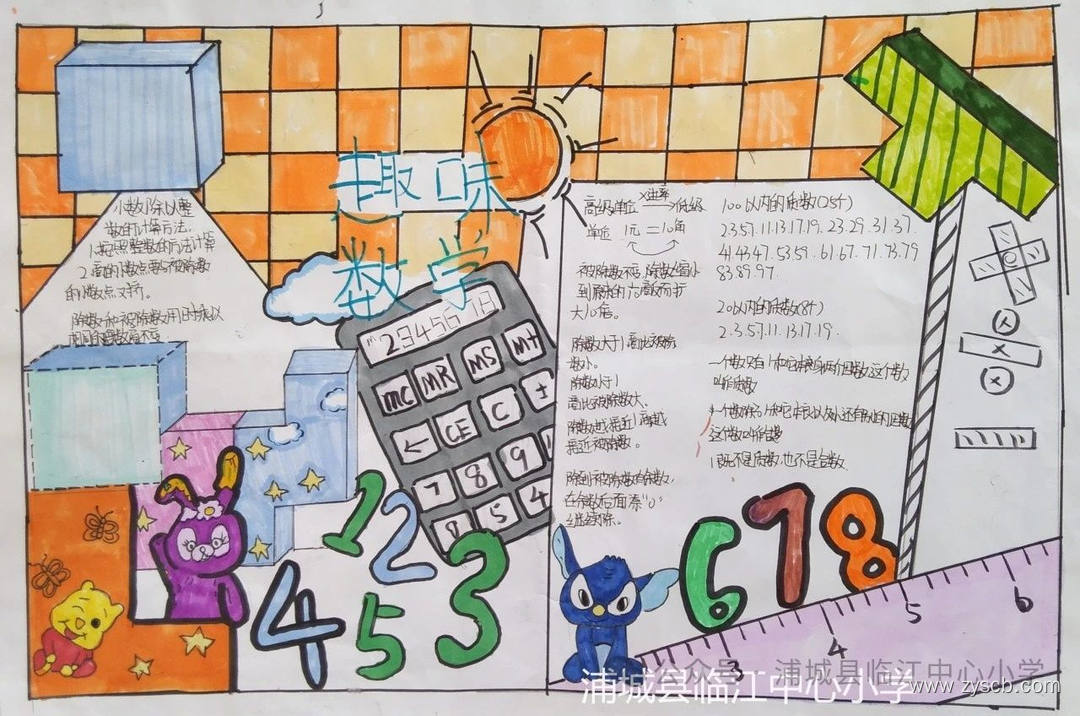 趣味
数学
小数除以整
数的计算方法.
1.按照整数的方法计算
2.商的小数点要与被除数
的小数点对齐。
除数和被除数同时乘以
高级单位 ×进率 低级
单位 1元=10角
大10倍。
除数大于1商比被除
数小。
除数小于1
商比被除数大、
接近被除数。
除到被除数有余数,
在余数后面添"0"
继续除。
100以内的质数(25个)
2.3.5.7.11.13.17.19.23.29.31.37.
41.43.47.53.59.61.67.71.73.79
83.89.97.
20以内的质数(8个)
2.3.5.7.11.13.17.19.
一个数只有1和它本身两个因数,这个数
叫质数
一个数除了1和它本身以外还有别的因数
这个数叫合数
1既不是质数,也不是合数
2345678
MC MR MS M+
← CE C ±
7 8 9
5 4
1 2 3 4 5
6 7 8
3 4 5 6
公众号 浦城县临江中心小学
浦城县临江中心小学
www.zyscb.com